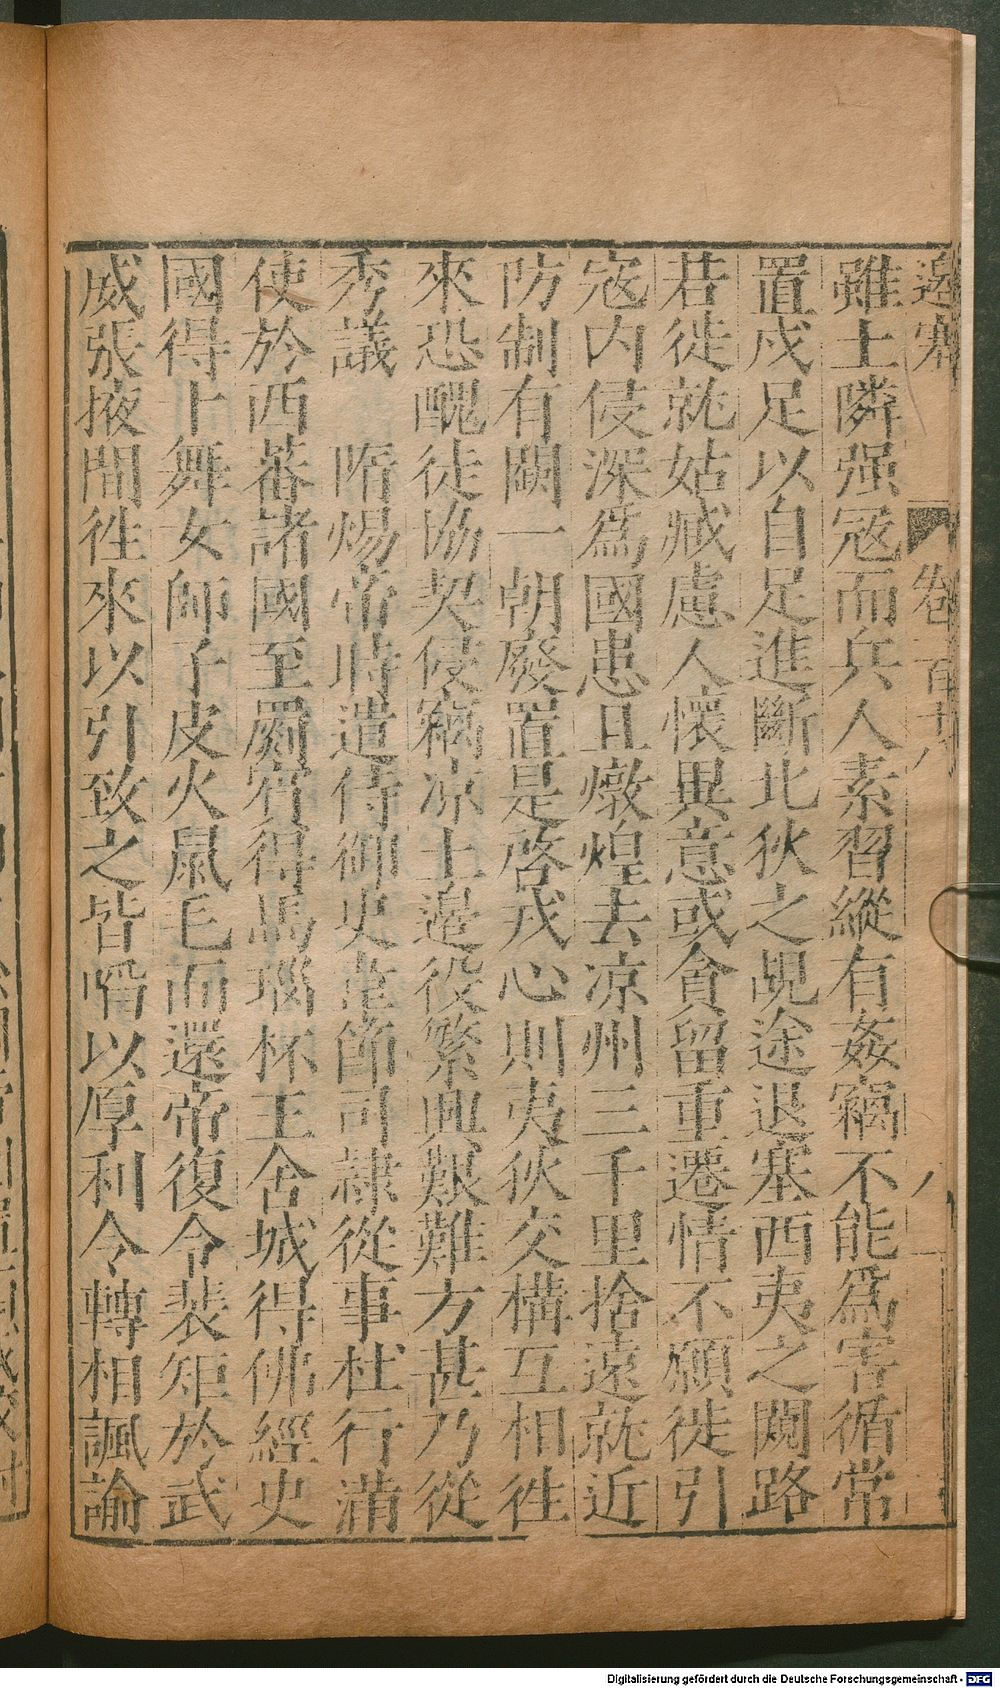 邊塞 卷一百十八 八
雖土隣强寇而兵人素習縱有姦竊不能爲害循常
置戍足以自足進斷北狄之覘途退塞西夷之闚路
若徙就姑臧慮人懷異意或貪留重遷情不願徙引
寇内侵深爲國患且燉煌去凉州三千里捨遠就近
防制有闕一朝廢置是啓戎心則夷狄交構互相徃
來恐醜徒協契侵竊凉土邊役繁興艱難方甚乃從
秀議 隋煬帝時遣侍御史韋節司隷從事杜行滿
使於西蕃諸國至罽賓得馬瑙杯王舍城得佛經史
國得十舞女師子皮火鼠毛而還帝復令裴矩於武
威張掖間徃來以引致之皆啗以厚利令轉相諷諭
Digitalisierung gefördert durch die Deutsche Forschungsgemeinschaft - DFG